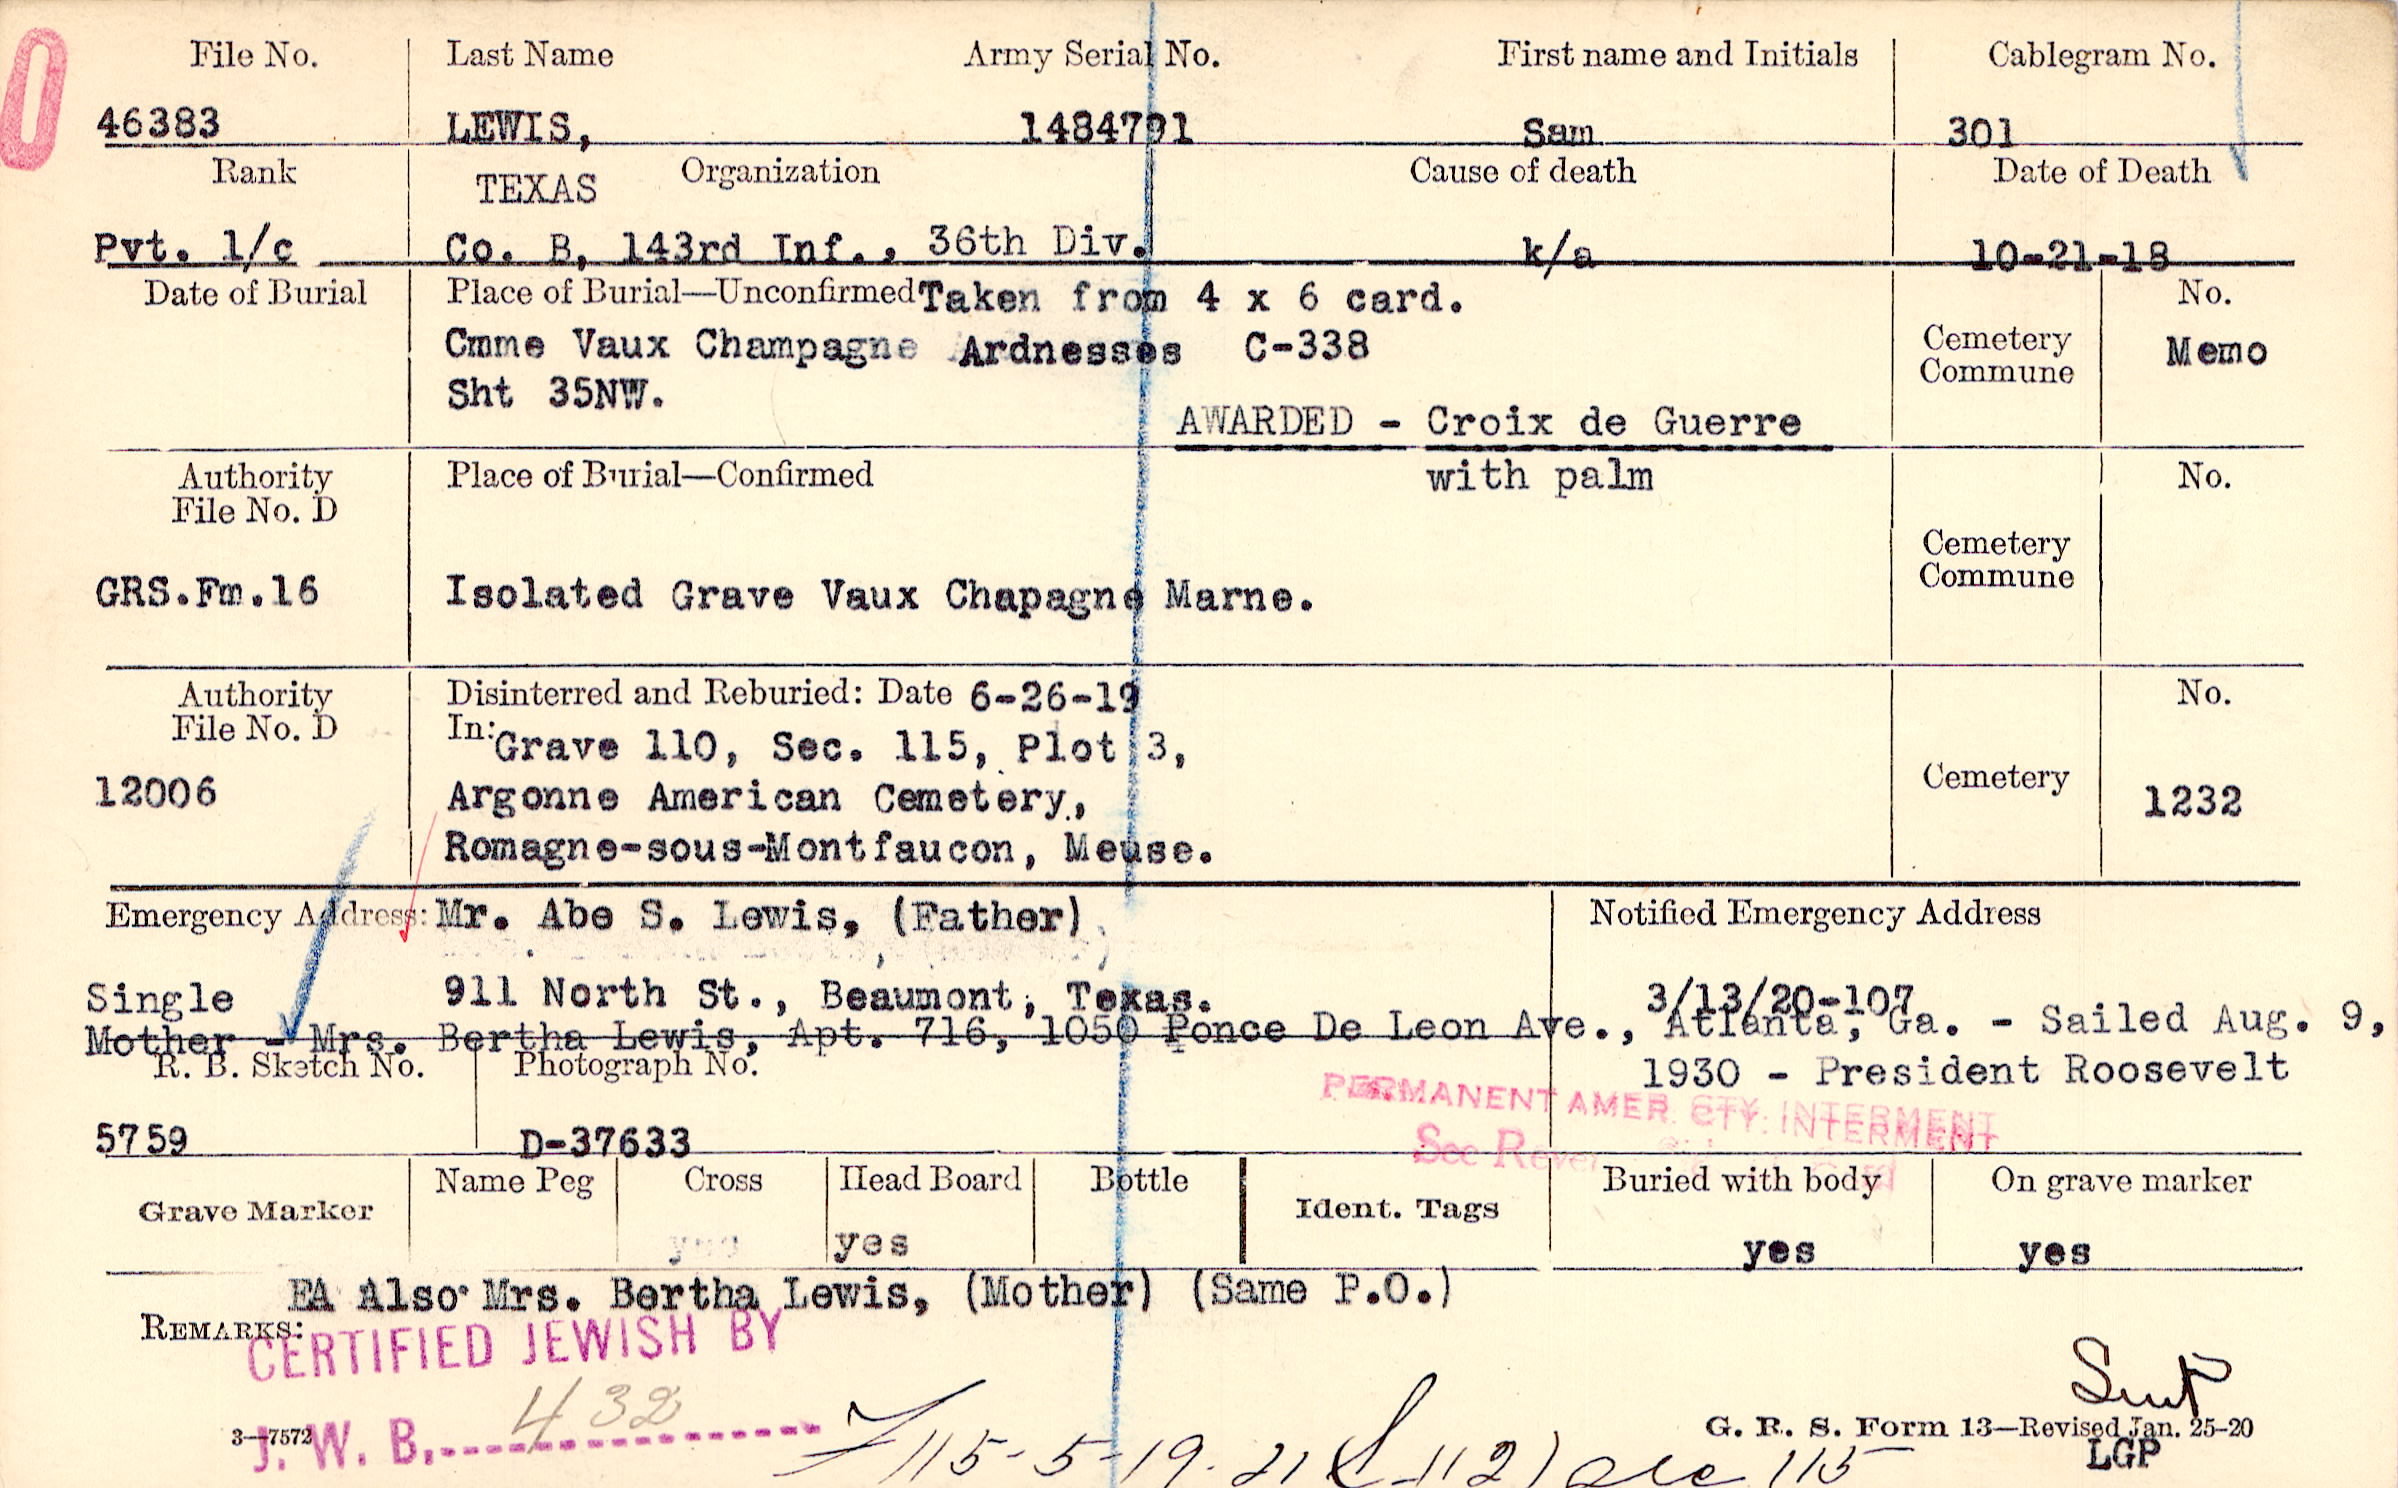 File No. Last Name Army Serial No. First name and Initials Cablegram No.
46383 LEWIS, 1484791 Sam 301
Rank TEXAS Organization Cause of death Date of Death
Pvt. 1/c Co. B, 143rd Inf., 36th Div. k/a 10-21-18
Date of Burial Place of Burial—Unconfirmed Taken from 4 x 6 card. No.
Cmme Vaux Champagne Ardnesses C-338 Cemetery Commune Memo
Sht 35NW.
AWARDED - Croix de Guerre
with palm
Authority File No. D Place of Burial—Confirmed No.
Cemetery Commune
GRS.Fm.16 Isolated Grave Vaux Chapagne Marne.
Authority Disinterred and Reburied: Date 6-26-19 No.
File No. D In: Grave 110, Sec. 115, Plot 3,
12006 Argonne American Cemetery, Cemetery 1232
Romagne-sous-Montfaucon, Meuse.
Emergency Address: Mr. Abe S. Lewis, (Father) Notified Emergency Address
Single 911 North St., Beaumont, Texas. 3/13/20-107
Mother - Mrs. Bertha Lewis, Apt. 716, 1050 Ponce De Leon Ave., Atlanta, Ga. - Sailed Aug. 9,
R. B. Sketch No. Photograph No. 1930 - President Roosevelt
PERMANENT AMER. CTY. INTERMENT
5759 D-37633 See
Grave Marker Name Peg Cross Head Board Bottle Ident. Tags Buried with body On grave marker
yes yes yes yes
EA Also Mrs. Bertha Lewis, (Mother) (Same P.O.)
REMARKS:
CERTIFIED JEWISH BY
J. W. B. 432
3—7572
115-5-19-21
115
G. R. S. Form 13—Revised Jan. 25-20
LGP